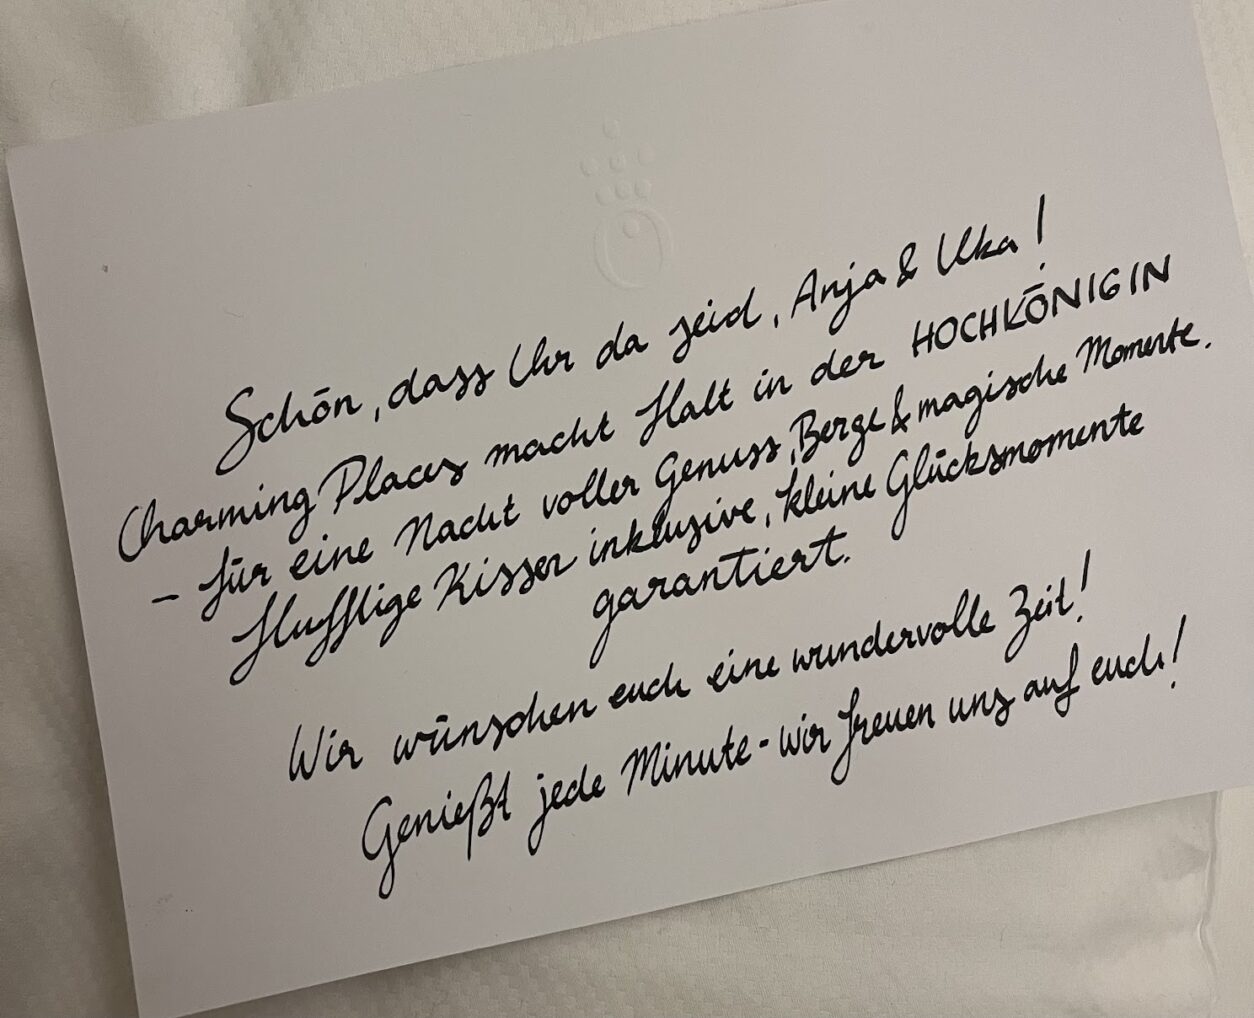 Schön, dass Ihr da seid, Anja & Uka!
Charming Places macht Halt in der HOCHKÖNIGIN
- für eine Nacht voller Genuss, Berge & magische Momente.
flufflige Kissen inklusive, kleine Glücksmomente
garantiert.
Wir wünschen euch eine wundervolle Zeit!
Genießt jede Minute - wir freuen uns auf euch!